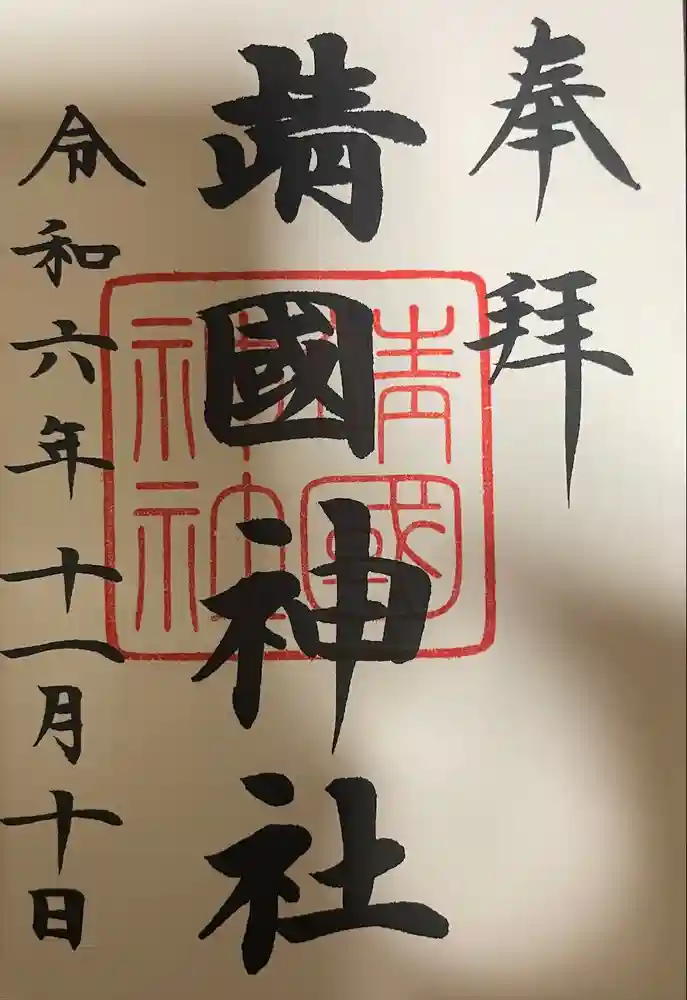 奉拝
靖國神社
靖國
神社
令和六年十一月十日